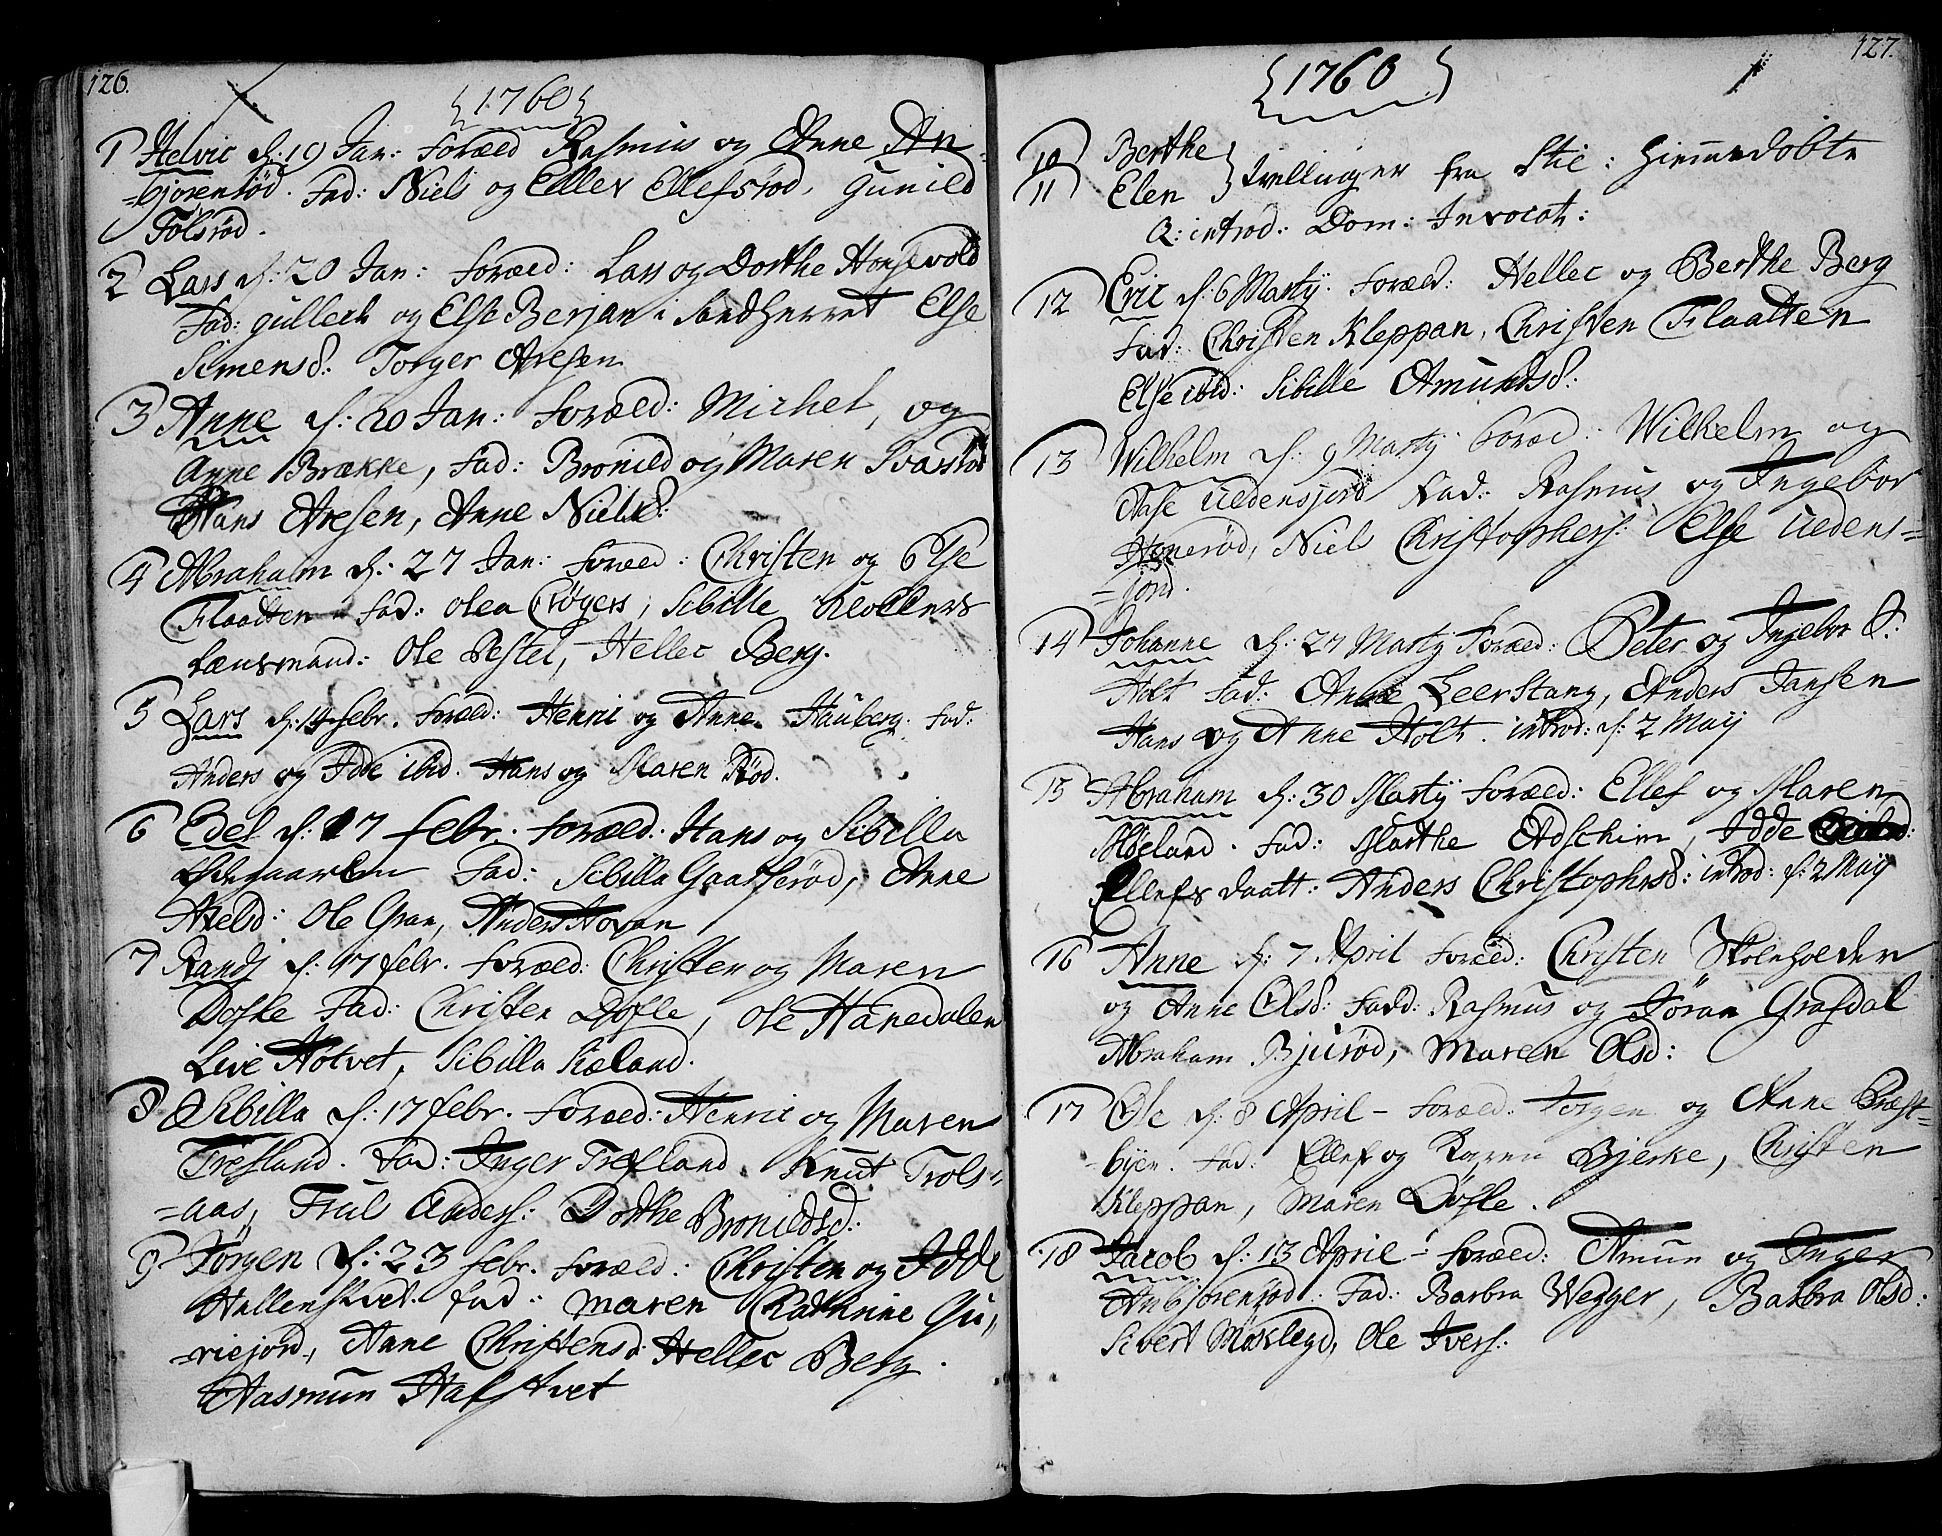 126.
1760
1 Helvic d: 19 Jan: foræld Rasmus og Anne An-
=bjørensrød. Fad: Niels og Eller Ellefsrød, Gunild
Tolsrød.
2 Lars d: 20 Jan: foræld: Lars og Dorthe
Fad: Gullech og Else Berjan i Sandherret Else
Simensd: Torger Aresen
3 Anne d: 20 Jan: foræld: Michel, og
Anne Brække, Fad: Bronild og Maren
Hans Aresen, Anne Nielsd:
4 Abraham d: 27 Jan: foræld: Christen og Else
Flaatten Fad: Olea Crøgers, Sibille
Lænsmand: Ole Pestel, Hellec Berg.
5 Lars d: 14 febr. foræld: Henric og Anne Hauberg Fad:
Anders og Idde ibid. Hans og Maren Rød.
6 Edel d: 17 febr. foræld: Hans og Sibilla
Fad: Sibilla Gaasserød, Anne
Axelsd: Ole Gran, Anders Hovan
7 Randj d: 17 febr. foræld: Christen og Maren
Dofle Fad: Christen Dofle, Ole Hanedalen
Live Holvet, Sibilla Kieland.
8 Sibilla d: 17 febr. foræld: Henric og Maren
Trefland. Fad: Inger Trefland, Knut Trols-
=aas, Truls Anders: Dorthe Bronildsd:
9 Jørgen d: 23 febr. foræld: Christen og Idde
Hallenstvet. Fad: Maren Cathrine Gu-
=riejord, Anne Christensd: Hellec Berg.
Aasmun Hafstvet
127.
1760
10 Berthe
11 Elen } tvillinger fra Stie: Hiemmedøbte
Q: introd: Dom: Invocat:
12 Eric d: 6 Martij. foræld: Hellec og Berthe Berg
Fad: Christen Kleppan, Christen Flaatten
Else ibid: Sibille Amundsd:
13 Wilhelm d: 9 Martij foræld: Wilhelm og
Aase Uedensjord Fad: Rasmus og Ingebor
Hanerød, Niels Christophers: Else Uedens=
=jord.
14 Johanne d: 27 Martij foræld: Peter og Ingebor
Holt Fad: Anne Leerstang, Anders Jansen
Hans og Anne Holt. introd: d: 2 Maij
15 Abraham d: 30 Martij foræld: Ellef og Maren
Møeland. Fad: Marthe Adschim, Idde
Ellefs daatt: Anders Christophersd: introd: d: 2 Maij
16 Anne d: 7 April foræld: Christen Skoleholder
og Anne Olsd: Fadd: Rasmus og Jøran Grafdal
Abraham Bjurød, Maren Olsd:
17 Ole d: 8 April – foræld: Jørgen og Anne Præst-
=byen. Fad: Ellef og Karen Bjerke, Christen
Kleppan, Maren Dofle.
18 Jacob d: 13 April – foræld: Amun og Inger
Anbjørensrød. Fad: Barbra Wegger, Barbra Olsd:
Sivert Møklegd, Ole Ivers: